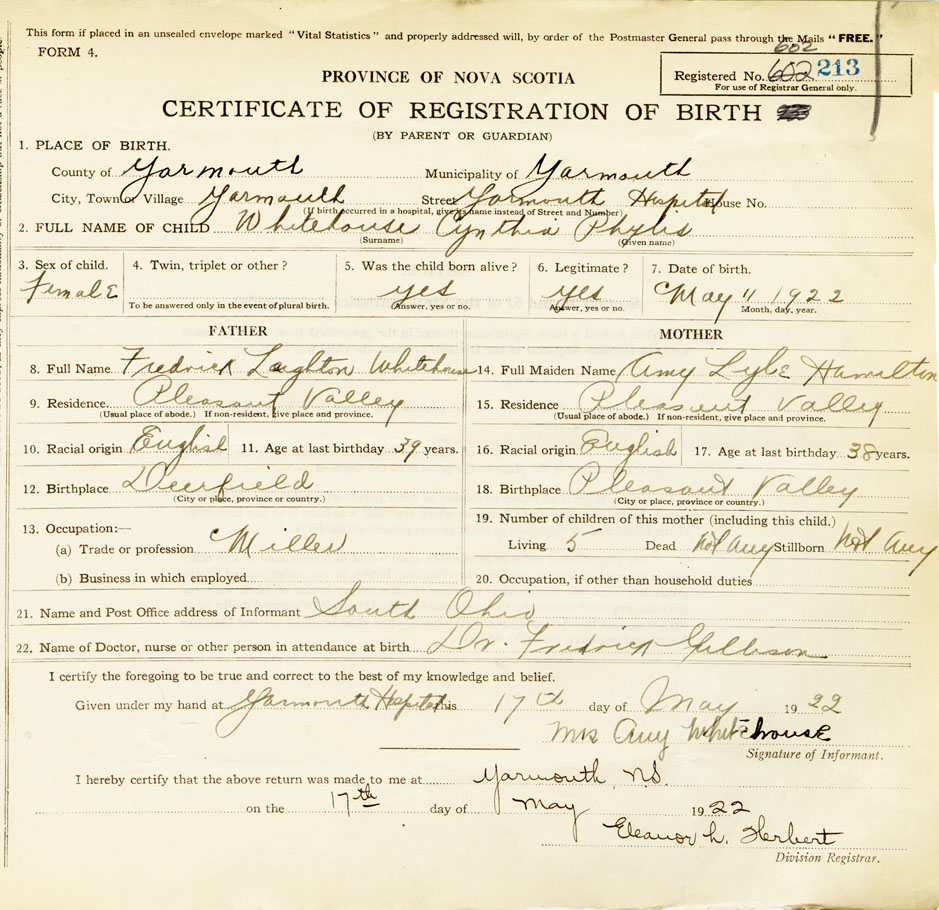 This form if placed in an unsealed envelope marked "Vital Statistics" and properly addressed will, by order of the Postmaster General pass through the Mails "FREE."
FORM 4.
602
PROVINCE OF NOVA SCOTIA
Registered No. 602 213
For use of Registrar General only.
CERTIFICATE OF REGISTRATION OF BIRTH
(BY PARENT OR GUARDIAN)
1. PLACE OF BIRTH.
County of Yarmouth Municipality of Yarmouth
City, Town or Village Yarmouth Street Yarmouth Hospital House No.
(If birth occurred in a hospital, give its name instead of Street and Number)
2. FULL NAME OF CHILD Whitehouse Cynthia Phylis
(Surname) (Given name)
3. Sex of child. 4. Twin, triplet or other? 5. Was the child born alive? 6. Legitimate? 7. Date of birth.
Female yes yes May 11 1922
To be answered only in the event of plural birth. Answer, yes or no. Answer, yes or no. Month, day, year.
FATHER MOTHER
8. Full Name Fredrick Laighton Whitehouse 14. Full Maiden Name Amy Lyle Hamilton
9. Residence Pleasant Valley 15. Residence Pleasant Valley
(Usual place of abode.) If non-resident, give place and province. (Usual place of abode.) If non-resident, give place and province.
10. Racial origin English 11. Age at last birthday 39 years. 16. Racial origin English 17. Age at last birthday 38 years.
12. Birthplace Deerfield 18. Birthplace Pleasant Valley
(City or place, province or country.) (City or place, province or country.)
13. Occupation:— 19. Number of children of this mother (including this child.)
(a) Trade or profession Miller Living 5 Dead Not Any Stillborn Not Any
(b) Business in which employed 20. Occupation, if other than household duties
21. Name and Post Office address of Informant South Ohio
22. Name of Doctor, nurse or other person in attendance at birth Dr. Fredrick
I certify the foregoing to be true and correct to the best of my knowledge and belief.
Given under my hand at Yarmouth Hospital this 17th day of May 1922
Mrs Amy Whitehouse
Signature of Informant.
I hereby certify that the above return was made to me at Yarmouth N.S.
on the 17th day of May 1922
Eleanor L. Herbert
Division Registrar.